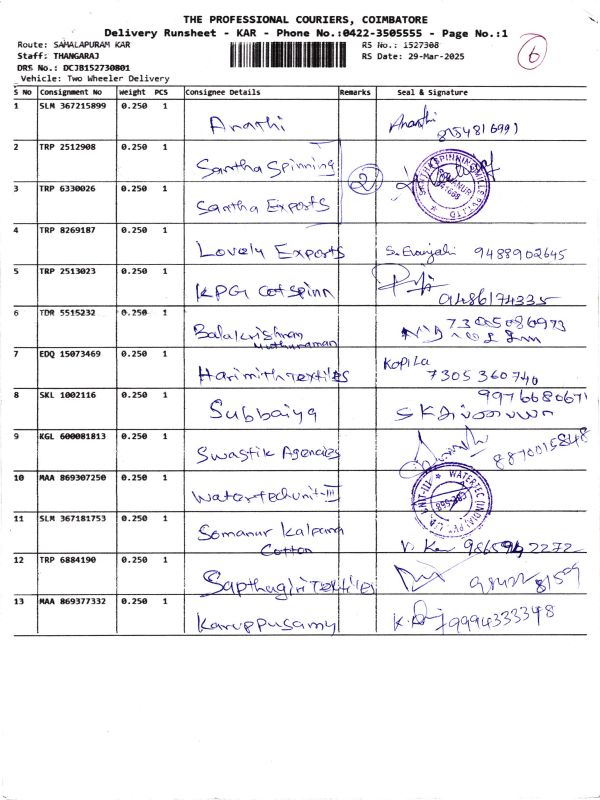 THE PROFESSIONAL COURIERS, COIMBATORE
Delivery Runsheet - KAR - Phone No.:0422-3505555 - Page No.:1
Route: SAMALAPURAM KAR RS No.: 1527308
Staff: THANGARAJ RS Date: 29-Mar-2025
DRS No.: DCJB152730801
Vehicle: Two Wheeler Delivery
6
S No Consignment No Weight PCS Consignee Details Remarks Seal & Signature
1 SLM 367215899 0.250 1 Arathi Ananthi
8754816991
2 TRP 2512908 0.250 1 Santha Spinning
2
3 TRP 6330026 0.250 1 Santha Exports
4 TRP 8269187 0.250 1 Lovely Exports 9488902645
5 TRP 2513023 0.250 1 KPG Cotspinn
9486174335
6 TDR 5515232 0.250 1 Balakrishnan 7305086973
Muthuraman
7 EDQ 15073469 0.250 1 Harimithratextiles Kopila
7305360740
8 SKL 1002116 0.250 1 Subbaiya 9976680671
9 KGL 600081813 0.250 1 Swastik Agencies 8870015848
10 MAA 869307250 0.250 1 Watertechunit-III
WATERTEC (INDIA) PVT. LTD. UNIT-III
11 SLM 367181753 0.250 1 Somanur Kalpana
Cotton 2272
12 TRP 6884190 0.250 1 Sapthagiri Textiles
13 MAA 869377332 0.250 1 Karuppusamy 9994333348